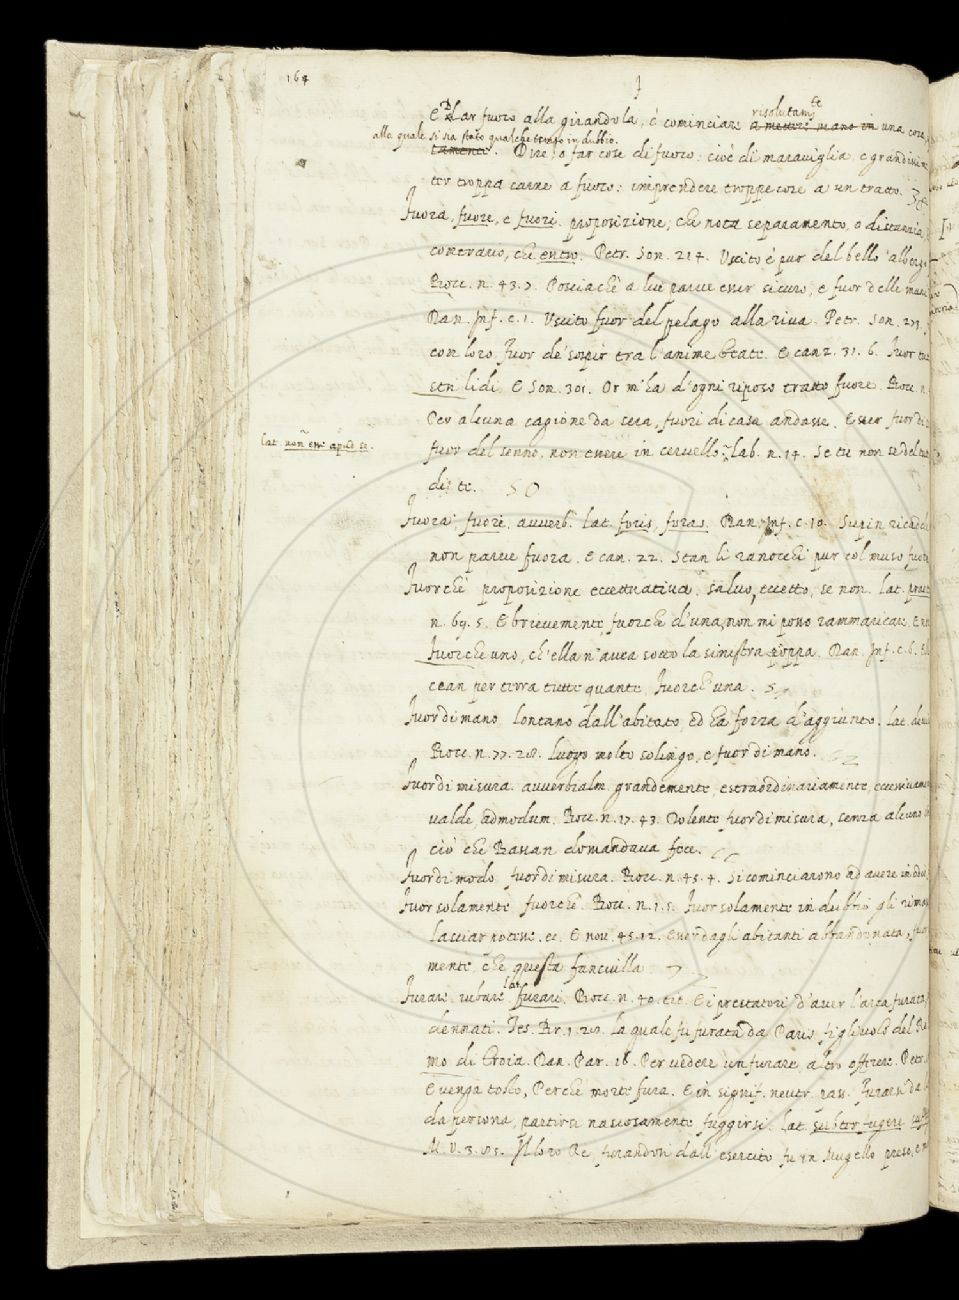 164
f
E Dar fuoco alla girandola, è cominciare risolutamte a mettere mano in una cosa,
alla quale si sia stato qualche tempo in dubbio.
tamente. Dire, o far cose di fuoco: cioè di maraviglia, e grandissime
ter troppa carne a fuoco: imprendere troppe cose a un tratto.
Fuora, fuore, e fuori. proposizione, che nota separamento, o distanzia,
contrario, che entro. Petr. Son. 214. Uscito è pur del bello albergo
Bocc. n. 43. 7. Posciachè a lui parve esser sicuro, e fuor delle mani
Dan. Inf. c. 1. Uscito fuor del pelago alla riva. Petr. Son.
con loro fuor de' sospir tra l'anime beate. E canz. 31. 6. Fuor
stri lidi. E Son. 301. Or m'ha d'ogni riposo tratto fuore. Bocc. n.
Per alcuna cagione da sera, fuori di casa andasse. Esser fuor di
Lat. non esse apud se.
fuor del senno, non essere in cervello. Lab. n. 14. Se tu non se del
di te.
Fuora, fuore, avverb. lat. foris, foras. Dan. Inf. c. 10. Supin ricadde
non parve fuora. E can. 22. Stan li ranocchi pur col muso fuora
Fuorchè proposizione eccettuativa. salvo, eccetto, se non. Lat.
n. 69. 5. E brievemente, fuorche d'una, non mi posso rammaricare.
Fuorche uno, ch'ella n'avea sotto la sinistra poppa. Dan. Inf. c. 6.
cean per terra tutte quante, Fuorch' una.
Fuordimano lontano dall'abitato, ed ha forza d'aggiunto. Lat.
Bocc. n. 77. 28. Luogo molto solingo, e fuordimano.
Fuordimisura. avverbialm. grandemente, estraordinariamente, eccessivamente
valde, admodum. Bocc. n. 17. 43. Dolente fuordimisura, senza alcuno
ciò che Bassan domandava fece.
Fuordimodo fuordimisura. Bocc. n. 45. 4. Si cominciarono ad avere in odio
Fuorsolamente fuorchè. Bocc. n. 1. 5. Fuorsolamente in dubbio gli
lasciar potesse. ec. E nov. 45. 12. Esser dagli abitanti abbandonata, fuor
mente, che questa fanciulla
Furare. rubare. lat. furari. Bocc. n. 40. tit. E i prestatori d'aver l'arca furata
dennati. Tes. Br. 1. 28. La quale fu furata da Paris figliuolo del Re
mo di Troia. Dan. Par. 18. Per vedere un furare, altro offrere. Petr.
E venga tosto, Perchè morte fura. E in signif. neutr. pass. Furarsi da
da persona, partirsi nascosamente fuggirsi. Lat. subterfugere
M. V. 3. 85. Il loro Re furandosi dall'esercito fu in Mugello preso,